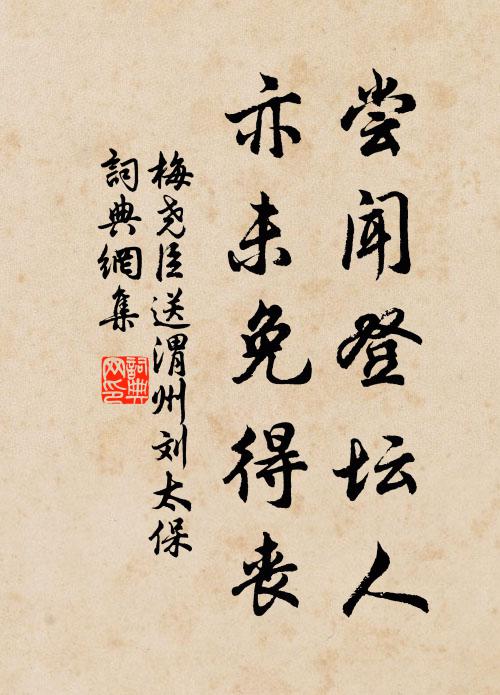 尝闻登坛人
亦未免得丧
梅尧臣送渭州刘太保
詞典網集
詞典
网印